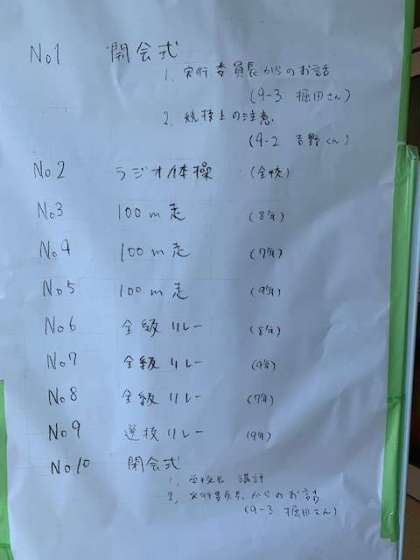 No1 開会式
1. 実行委員長からのお話
(9-3 堀田さん)
2. 競技上の注意
(9-2 吉野くん)
No2 ラジオ体操 (全校)
No3 100m走 (8年)
No4 100m走 (7年)
No5 100m走 (9年)
No6 全級リレー (8年)
No7 全級リレー (9年)
No8 全級リレー (7年)
No9 選抜リレー (9年)
No10 閉会式
1. 学校長 講評
2. 実行委員長からのお話
(9-3 堀田さん)